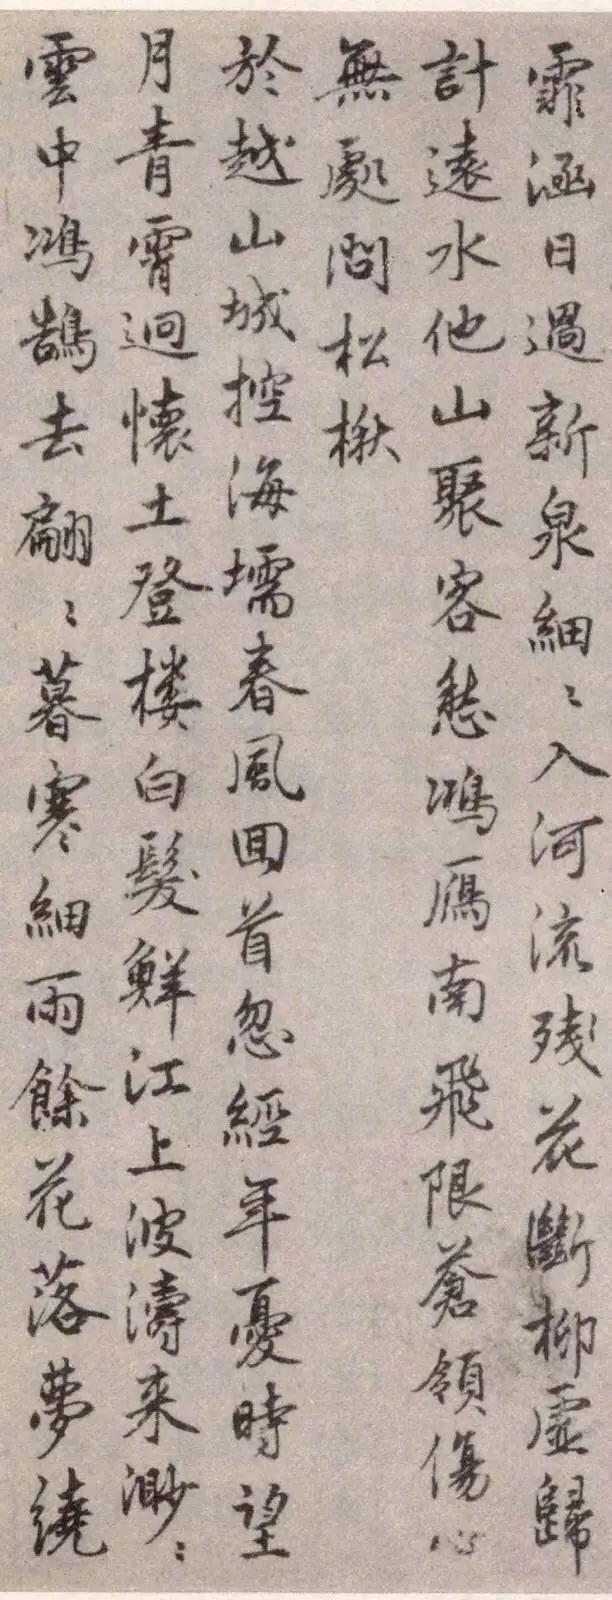 霏涵日過新泉細〻入河流残花斷柳虛歸
計遠水他山聚客愁鴻雁南飛限蒼領傷心
無處問松楸
於越山城控海壖春風回首忽經年憂時望
月青霄迥懷土登樓白髮鮮江上波濤来渺〻
雲中鴻鵠去翩〻暮寒細雨餘花落夢繞